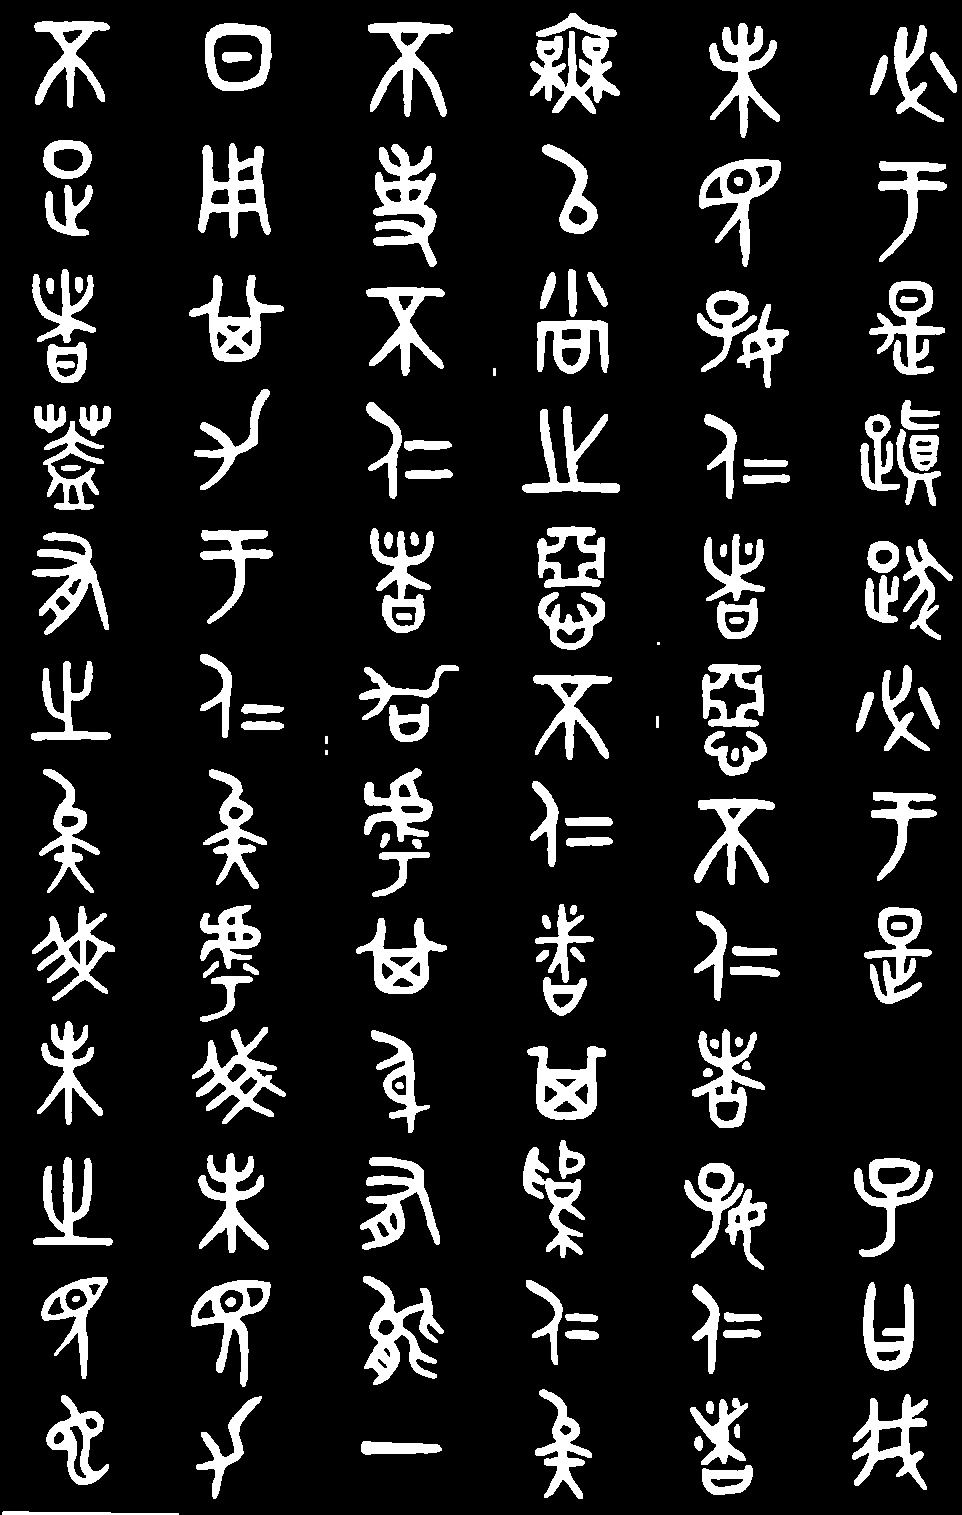 必于是蹎跋必于是 子曰我
未見好仁者惡不仁者好仁者
無以尚之惡不仁者其為仁矣
不使不仁者加乎其身有能一
日用其力于仁矣乎我未見力
不足者蓋有之矣我未之見也